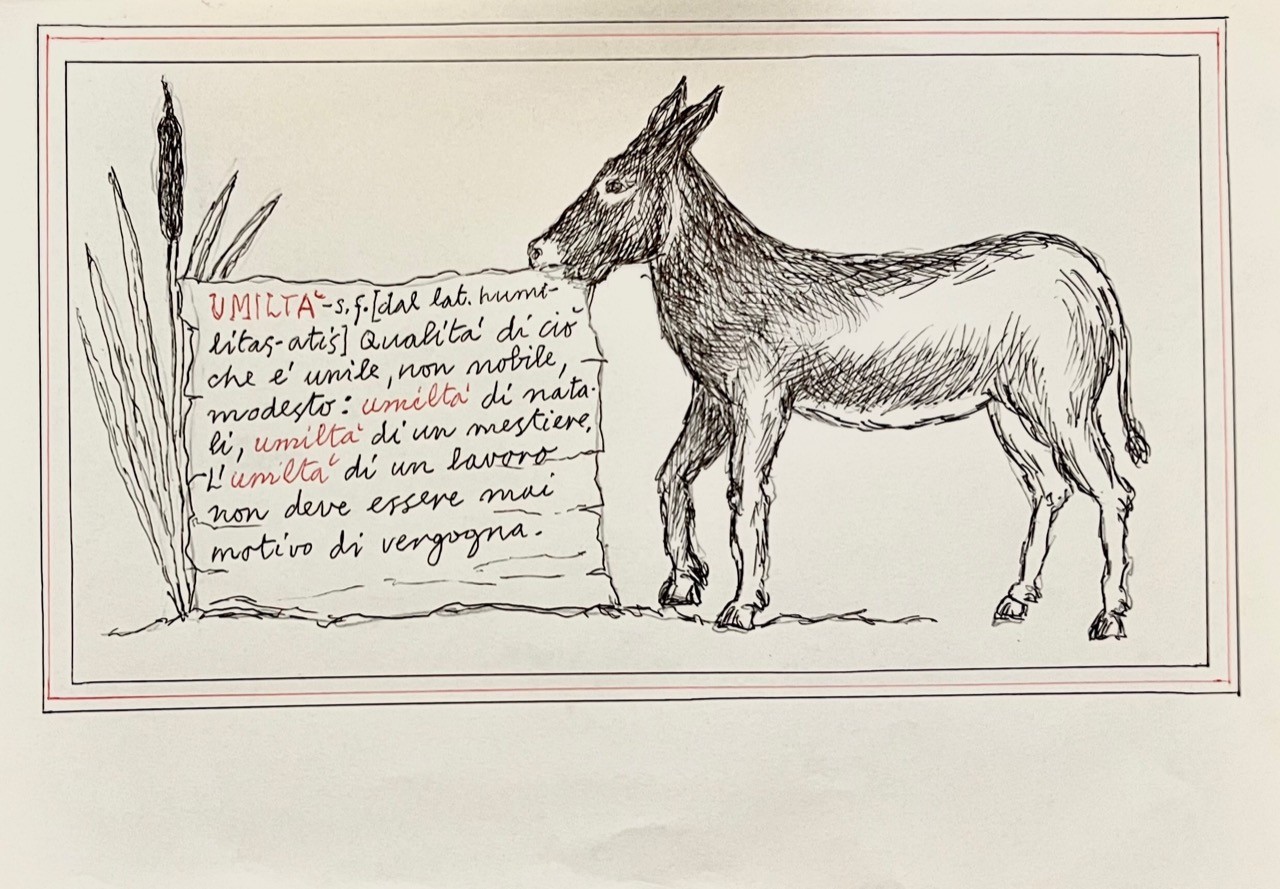 UMILTÀ - s.f. [dal lat. humi-
litas-atis] Qualità di ciò
che è umile, non nobile,
modesto: umiltà di nata-
li, umiltà di un mestiere.
L'umiltà di un lavoro
non deve essere mai
motivo di vergogna.